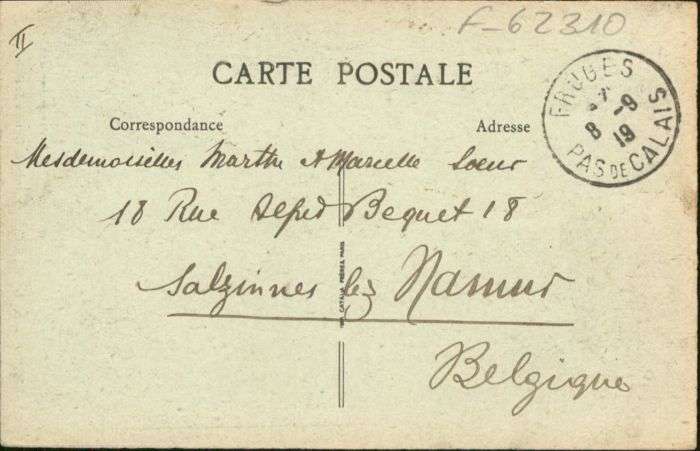 II
F-62310
CARTE POSTALE
FRUGES
8 -9
19
PAS DE CALAIS
Correspondance
Adresse
Mesdemoiselles Marthe & Marcelle Soeur
18 Rue Alfred Bequet 18
Salzinnes lez Namur
Belgique
IMP. CATALA FRÈRES, PARIS